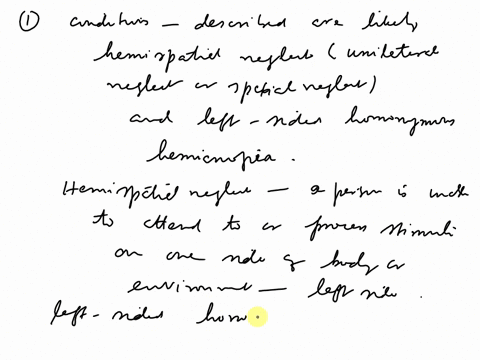 ① conditions — described are likely
hemispatial neglect (unilateral
neglect or spatial neglect)
and left-sided homonymous
hemianopia.
Hemispatial neglect — a person is unable
to attend to or process stimuli
on one side of body or
environment — left side.
left-sided hom